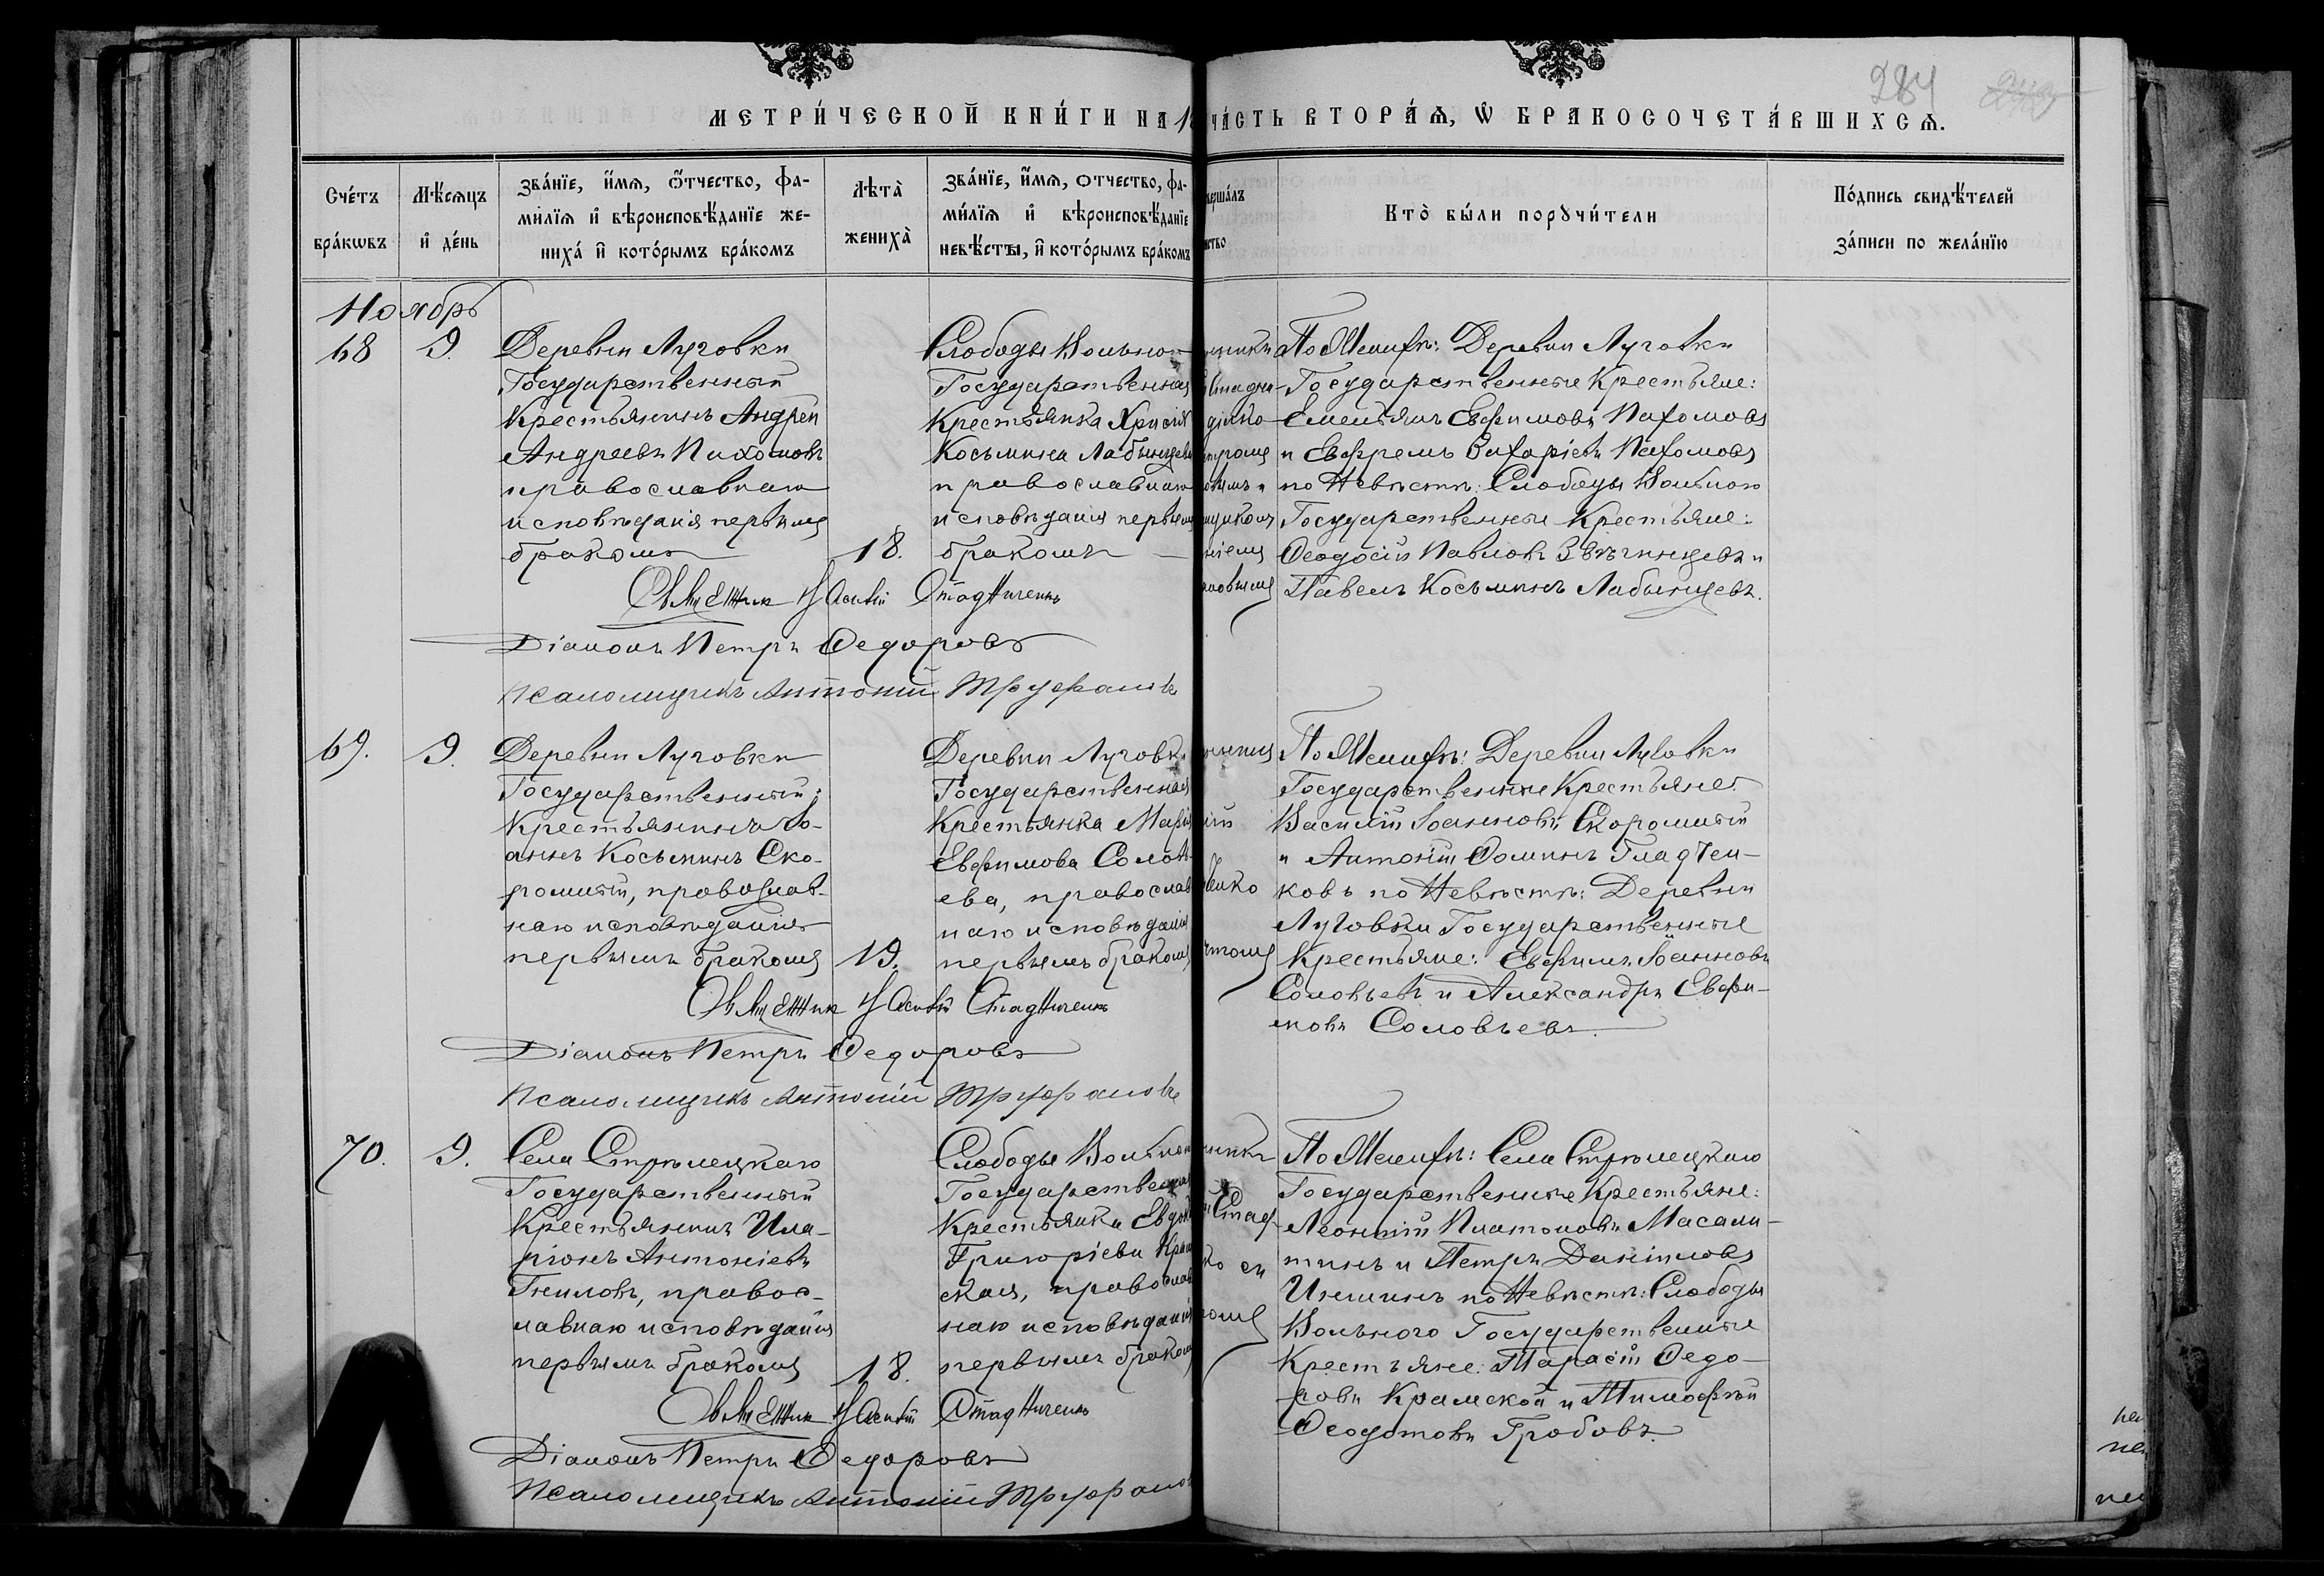 284
МЕТРИ́ЧЕСКОЙ КНИ́ГИ НА 18
ЧА́СТЬ ВТОРА́Ѧ, Ѡ БРАКОСОЧЕТА́ВШИХСѦ.
Сче́тъ бра́кѡвъ
Мѣ́сѧцъ и҆ де́нь
Зва́нїе, и҆́мѧ, ѻ҆́тчество, фа-
ми́лїѧ и҆ вѣроисповѣ́данїе же-
ниха́ и҆ кото́рымъ бра́комъ
Лѣта̀ жениха̀
Зва́нїе, и҆́мѧ, отчество, фа-
ми́лїѧ и҆ вѣроисповѣ́данїе
невѣ́сты, и҆ кото́рымъ бра́комъ
Кто̀ бы́ли порꙋчи́тели
По́дпись свидѣ́телей
за́писи по жела́нїю
Ноябрь
68
9.
Деревни Луговки
Государственный
Крестьянинъ Андрей
Андреевъ Пахомовъ
православнаго
исповѣданія первымъ
бракомъ
18.
Слободы Вольной
Государственная
Крестьянка
Косьмина Лабынцева
православнаго
исповѣданія первымъ
бракомъ
По Женихѣ: Деревни Луговки
Государственные Крестьяне:
Емельянъ Евфимовъ Пахомовъ
и Евфремъ Захаріевъ Пахомовъ
по Невѣстѣ: Слободы Вольной
Государственные Крестьяне:
Ѳеодосій Павловъ Звѣгинцевъ и
Павелъ Косьминъ Лабынцевъ.
Священникъ Стадниченко
Діаконъ Петръ Ѳедоровъ
Псаломщикъ Антоній Труфановъ
69.
9.
Деревни Луговки
Государственный
Крестьянинъ Іо-
аннъ Косьминъ Ско-
ромный, православ-
наго исповѣданія
первымъ бракомъ
19.
Деревни Луговки
Государственная
Крестьянка Марія
Евфимова Соловь-
ева, православ-
наго исповѣданія
первымъ бракомъ
По Женихѣ: Деревни Луговки
Государственные Крестьяне:
Василій Іоанновъ Скоромный
и Антоній Ѳоминъ Гладчен-
ковъ по Невѣстѣ: Деревни
Луговки Государственные
Крестьяне: Евфимъ Іоанновъ
Соловьевъ и Александръ Евфи-
мовъ Соловьевъ.
Священникъ Стадниченко
Діаконъ Петръ Ѳедоровъ
Псаломщикъ Антоній Труфановъ
70.
9.
Села Стрѣлецкаго
Государственный
Крестьянинъ Ила-
ріонъ Антоніевъ
Гниловъ, правос-
лавнаго исповѣданія
первымъ бракомъ
18.
Слободы Вольной
Государственная
Крестьянка
Григоріева Крам
ская, православ
наго исповѣданія
первымъ бракомъ
По Женихѣ: Села Стрѣлецкаго
Государственные Крестьяне:
Леонтій Платоновъ Масали-
тинъ и Петръ Даніиловъ
по Невѣстѣ: Слободы
Вольного Государственные
Крестьяне: Тарасій Ѳедо-
ровъ Крамской и Тимофѣй
Ѳеодотовъ Гробовъ.
Священникъ Стадниченко
Діаконъ Петръ Ѳедоровъ
Псаломщикъ Антоній Труфановъ